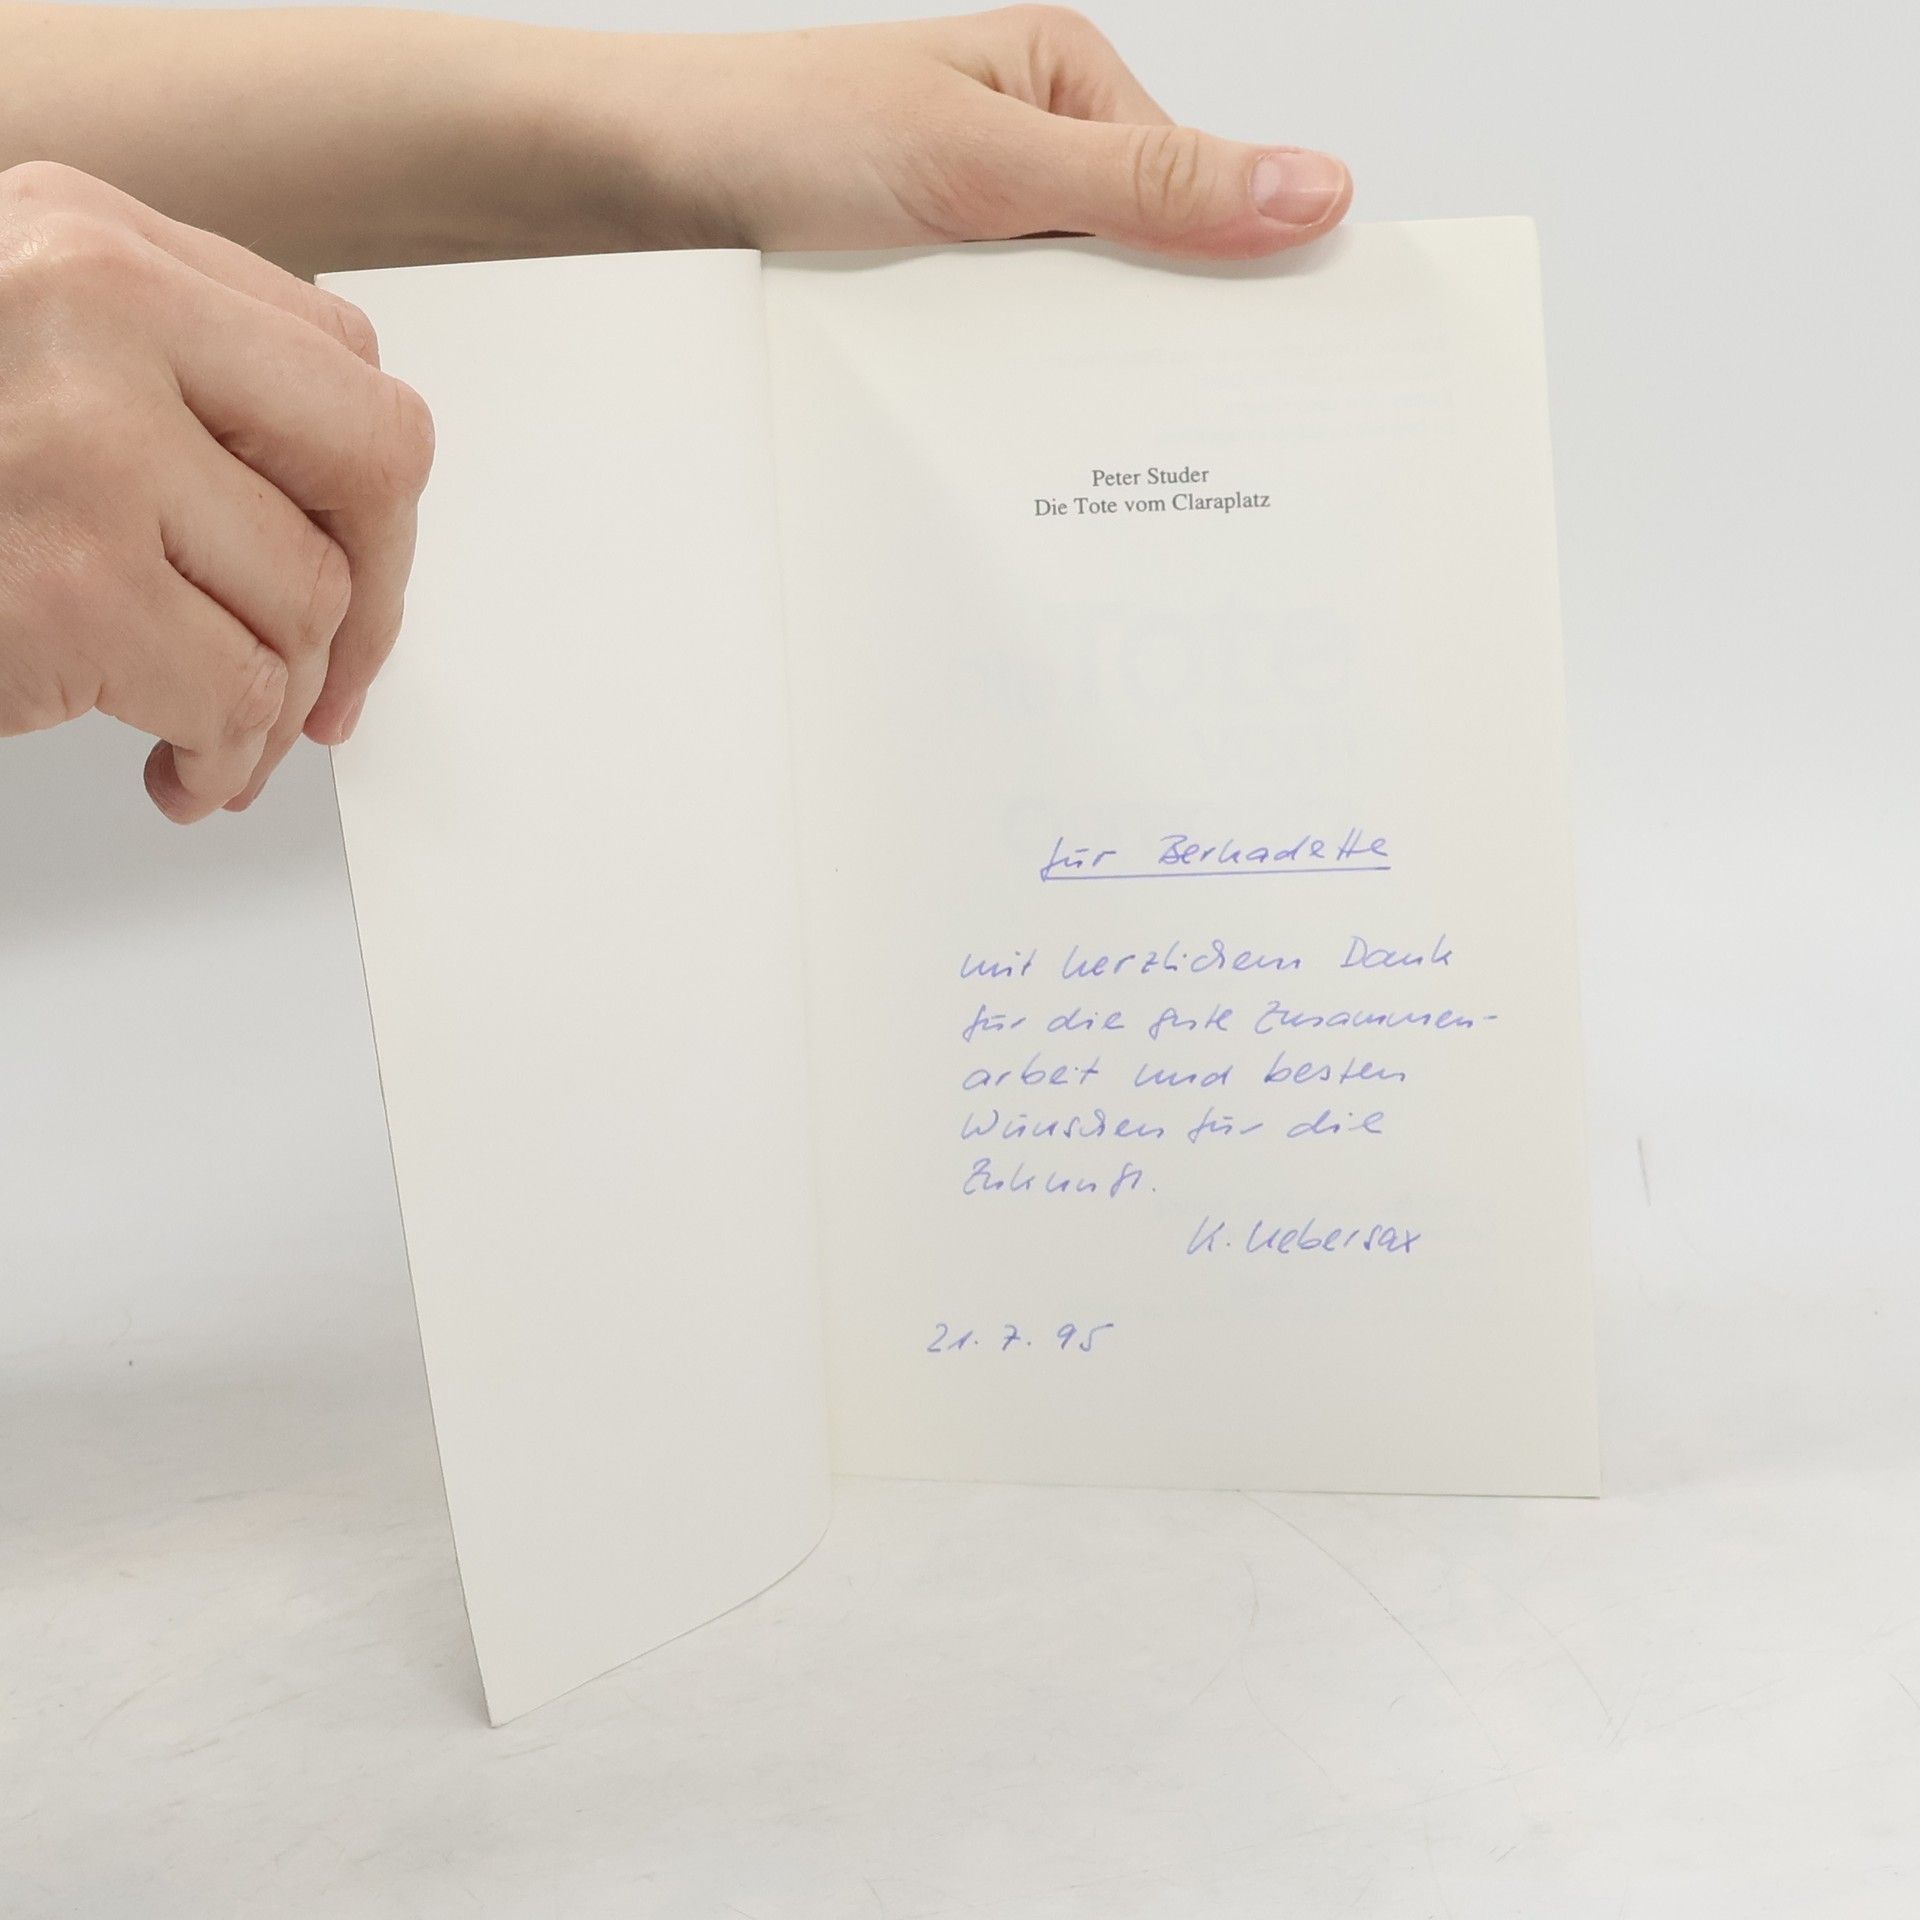 Peter Studer
Die Tote vom Claraplatz
für Bernadette
mit herzlichem Dank
für die gute Zusammen-
arbeit und besten
Wünschen für die
Zukunft.
K. Uebersax
21. 7. 95